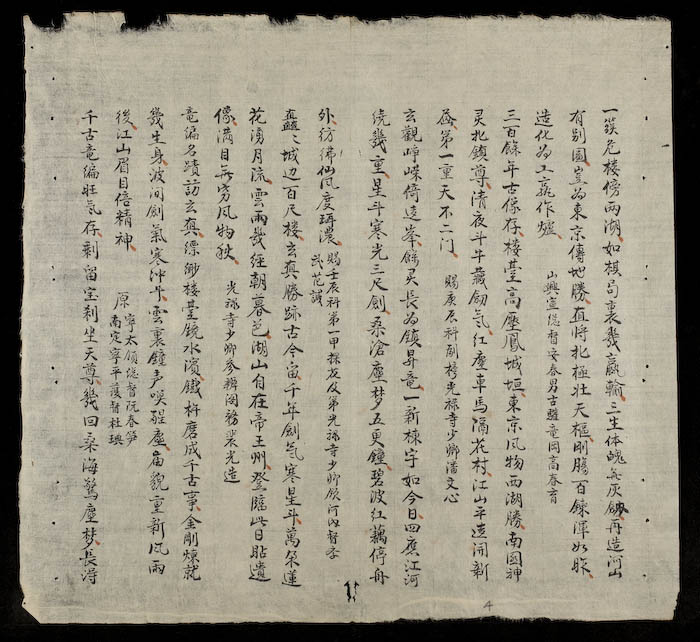 一簇危楼傍兩湖如棋局裏幾贏輸三生体魄無灰劍再造河山
有别圖豈為東京傳地勝直將北極壮天樞剛腸百鍊渾如昨
造化為工竟作爐 山興宣總督安春男古驩竜岡高春育
三百餘年古像存楼䑓高壓鳳城垣東京风物西湖勝南國神
灵北鎮尊清夜斗牛藏劍氣红塵車馬隔花村江山平遠開新
第一重天不二门 賜庚辰科副榜光禄寺少卿潘文心
玄觀崢嶸倚遠峯餘灵長為鎮昇竜一新棟宇如今日四應江河
繞幾重星斗寒光三尺劍桑滄塵梦五更鐘碧波红藕停舟
外彷彿仙风度珥濃 賜壬辰科第一甲探花及第光禄寺少卿領河内督李武范諴
矗〻城边百尺楼玄真勝跡古今留千年劍气寒星斗萬朶蓮
花湧月流雲雨幾經朝暮邑湖山自在帝王州登臨此日貽遺
像满目無穷风物秋 光禄寺少卿参辨阁務裴光造
竜编名蹟訪玄真縹緲楼䑓镜水濱鐵杵磨成千古事金剛煉就
幾生身波间劍氣寒沖斗雲裏鐘声喚醒塵庙貌重新风雨
後江山眉目倍精神 原寧太領總督阮春笋南定寧平護督杜璵
千古竜编旺气存剩留宝刹坐天尊幾回桑海驚塵梦長淂
4